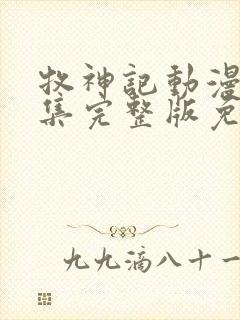 牧神記動漫
集完整版免
九九滴八十一